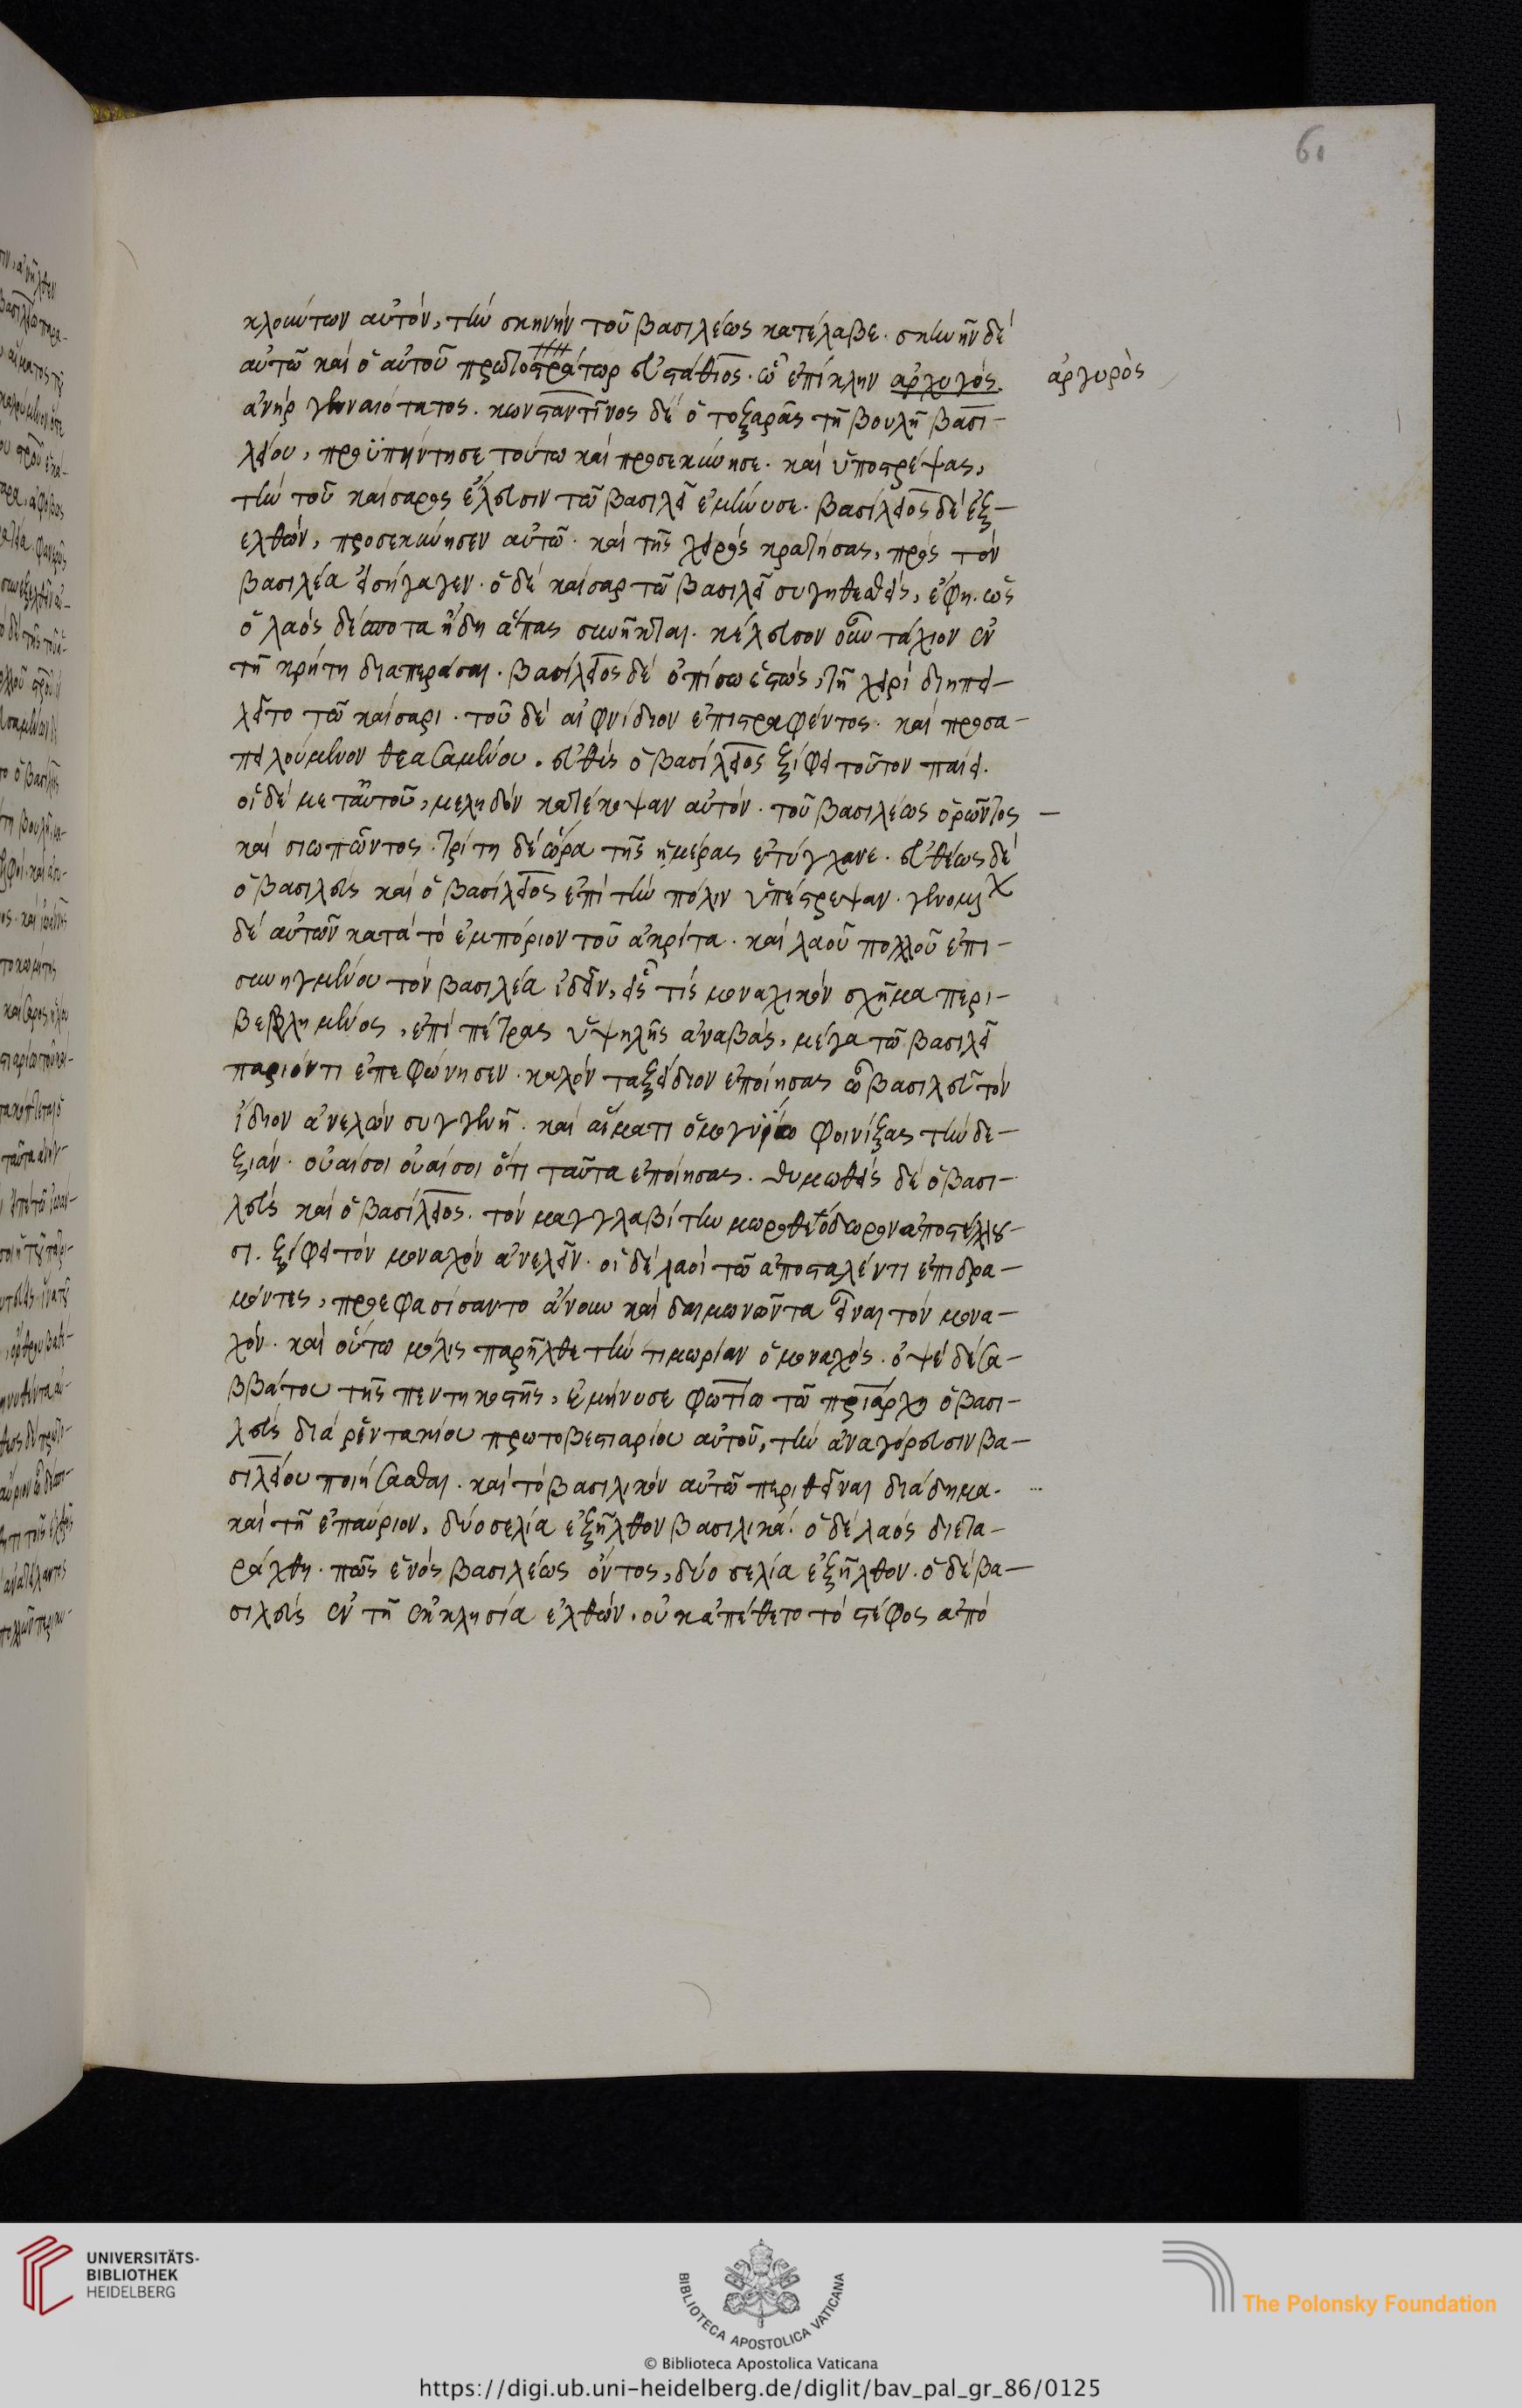 61
κλονούντων αὐτόν, τὴν σκηνὴν τοῦ βασιλέως κατέλαβε. συνῆν δέ
αὐτῶ καὶ ὁ αὐτοῦ πρωτοστράτωρ εὐστάθιος. ὧ ἐπίκλην αργυγός. ἀργυρὸς
ἀνὴρ γενναιότατος. κωνσταντῖνος δέ ὁ τοξαρᾶς τῆ βουλῆ βασι-
λείου, προϋπήντησε τούτω καὶ προσεκύνησε. καὶ ὑποστρέψας,
τὴν τοῦ καίσαρος ἔλευσιν τῶ βασιλεῖ ἐμήνυσε. βασίλειος δέ ἐξ-
ελθών, προσεκύνησεν αὐτῶ. καὶ τῆς χειρός κρατήσας, πρός τόν
βασιλέα εἰσήγαγεν. ὁ δέ καίσαρ τῶ βασιλεῖ συγκαθεσθείς, ἔφη. ὡς
ὁ λαός δέσποτα ἤδη ἅπας συνῆκται. κέλευσον οὖν τάχιον ἐν
τῆ κρήτη διαπεράσαι. βασίλειος δέ ὀπίσω ἑστώς, τῆ χειρί διηπει-
λεῖτο τῶ καίσαρι. τοῦ δέ αἰφνίδιον ἐπιστραφέντος. καὶ προσα-
πειλούμενον θεασαμένου. εὐθύς ὁ βασίλειος ξίφει τοῦτον παίει.
οἱ δέ μετ αὐτοῦ, μεληδόν κατέκοψαν αὐτόν. τοῦ βασιλέως ὁρῶντος
καὶ σιωπῶντος. τρίτη δέ ὥρα τῆς ἡμέρας ἐτύγχανε. εὐθέως δέ
ὁ βασιλεύς καὶ ὁ βασίλειος ἐπί τὴν πόλιν ὑπέστρεψαν. γενομένων
δέ αὐτῶν κατά τό ἐμπόριον τοῦ ἀκρίτα. καὶ λαοῦ πολλοῦ ἐπι-
συνηγμένου τόν βασιλέα ἰδεῖν, εἷς τίς μοναχικόν σχῆμα περι-
βεβλημένος, ἐπί πέτρας ὑψηλῆς ἀναβάς, μέγα τῶ βασιλεῖ
παριόντι ἐπεφώνησεν. καλόν ταξείδιον ἐποίησας ὦ βασιλεῦ τόν
ἴδιον ἀνελών συγγενῆ. καὶ αἵματι ὁμογνίω φοινίξας τὴν δε-
ξιάν. οὐαί σοι οὐαί σοι ὅτι ταῦτα ἐποίησας. θυμωθείς δέ ὁ βασι-
λεύς καὶ ὁ βασίλειος. τόν μαγγλαβίτην μωροθεόδωρον ἀποστέλλου-
σι. ξίφει τόν μοναχόν ἀνελεῖν. οἱ δέ λαοί τῶ ἀποσταλέντι ἐπιδρα-
μόντες, προεφασίσαντο ἄνουν καὶ δαιμονῶντα εἶναι τόν μονα-
χόν. καὶ οὕτω μόλις παρῆλθε τὴν τιμωρίαν ὁ μοναχός. ὀψέ δέ σα-
ββάτου τῆς πεντηκοστῆς, ἐμήνυσε φωτίω τῶ πριάρχη ὁ βασι-
λεύς διά ῥεντακίου πρωτοβεστιαρίου αὐτοῦ, τὴν ἀναγόρευσιν βα-
σιλείου ποιήσασθαι. καὶ τό βασιλικόν αὐτῶ περιθεῖναι διάδημα.
καὶ τῆ ἐπαύριον, δύο σελία ἐξῆλθον βασιλικά. ὁ δέ λαός διετα-
ράχθη. πῶς ἑνός βασιλέως ὄντος, δύο σελία ἐξῆλθον. ὁ δέ βα-
σιλεύς ἐν τῆ ἐκκλησία ἐλθών. οὐκ ἀπέθετο τό στέφος ἀπό
UNIVERSITÄTS-
BIBLIOTHEK
HEIDELBERG
BIBLIOTECA APOSTOLICA VATICANA
The Polonsky Foundation
© Biblioteca Apostolica Vaticana
https://digi.ub.uni-heidelberg.de/diglit/bav_pal_gr_86/0125